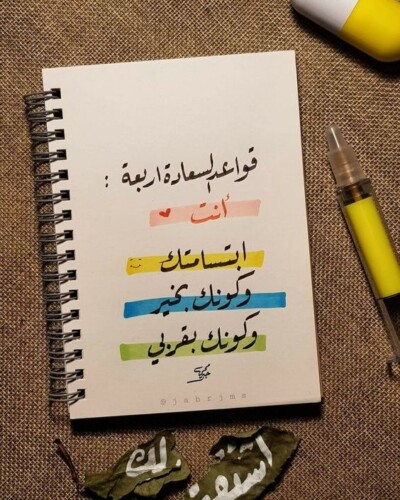 قواعد السعادة اربعة :
أنت
ابتسامتك
وكونك بخير
وكونك بقربي
@jabrjma
لك